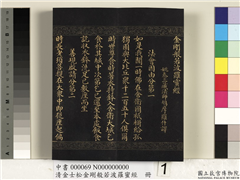 金剛般若波羅蜜經
姚秦三藏法師鳩摩羅什譯
法會因由分第一
如是我聞一時佛在舍衛國祇樹給孤
獨園與大比丘眾千二百五十人俱爾
時世尊食時著衣持鉢入舍衛大城乞
食於其城中次第乞已還至本處飯食
訖收衣鉢洗足已敷座而坐
善現啟請分第二
時長老須菩提在大眾中即從座起偏
1
中書 000069 N000000000
清金士松金剛般若波羅蜜經 冊
國立故宮博物院